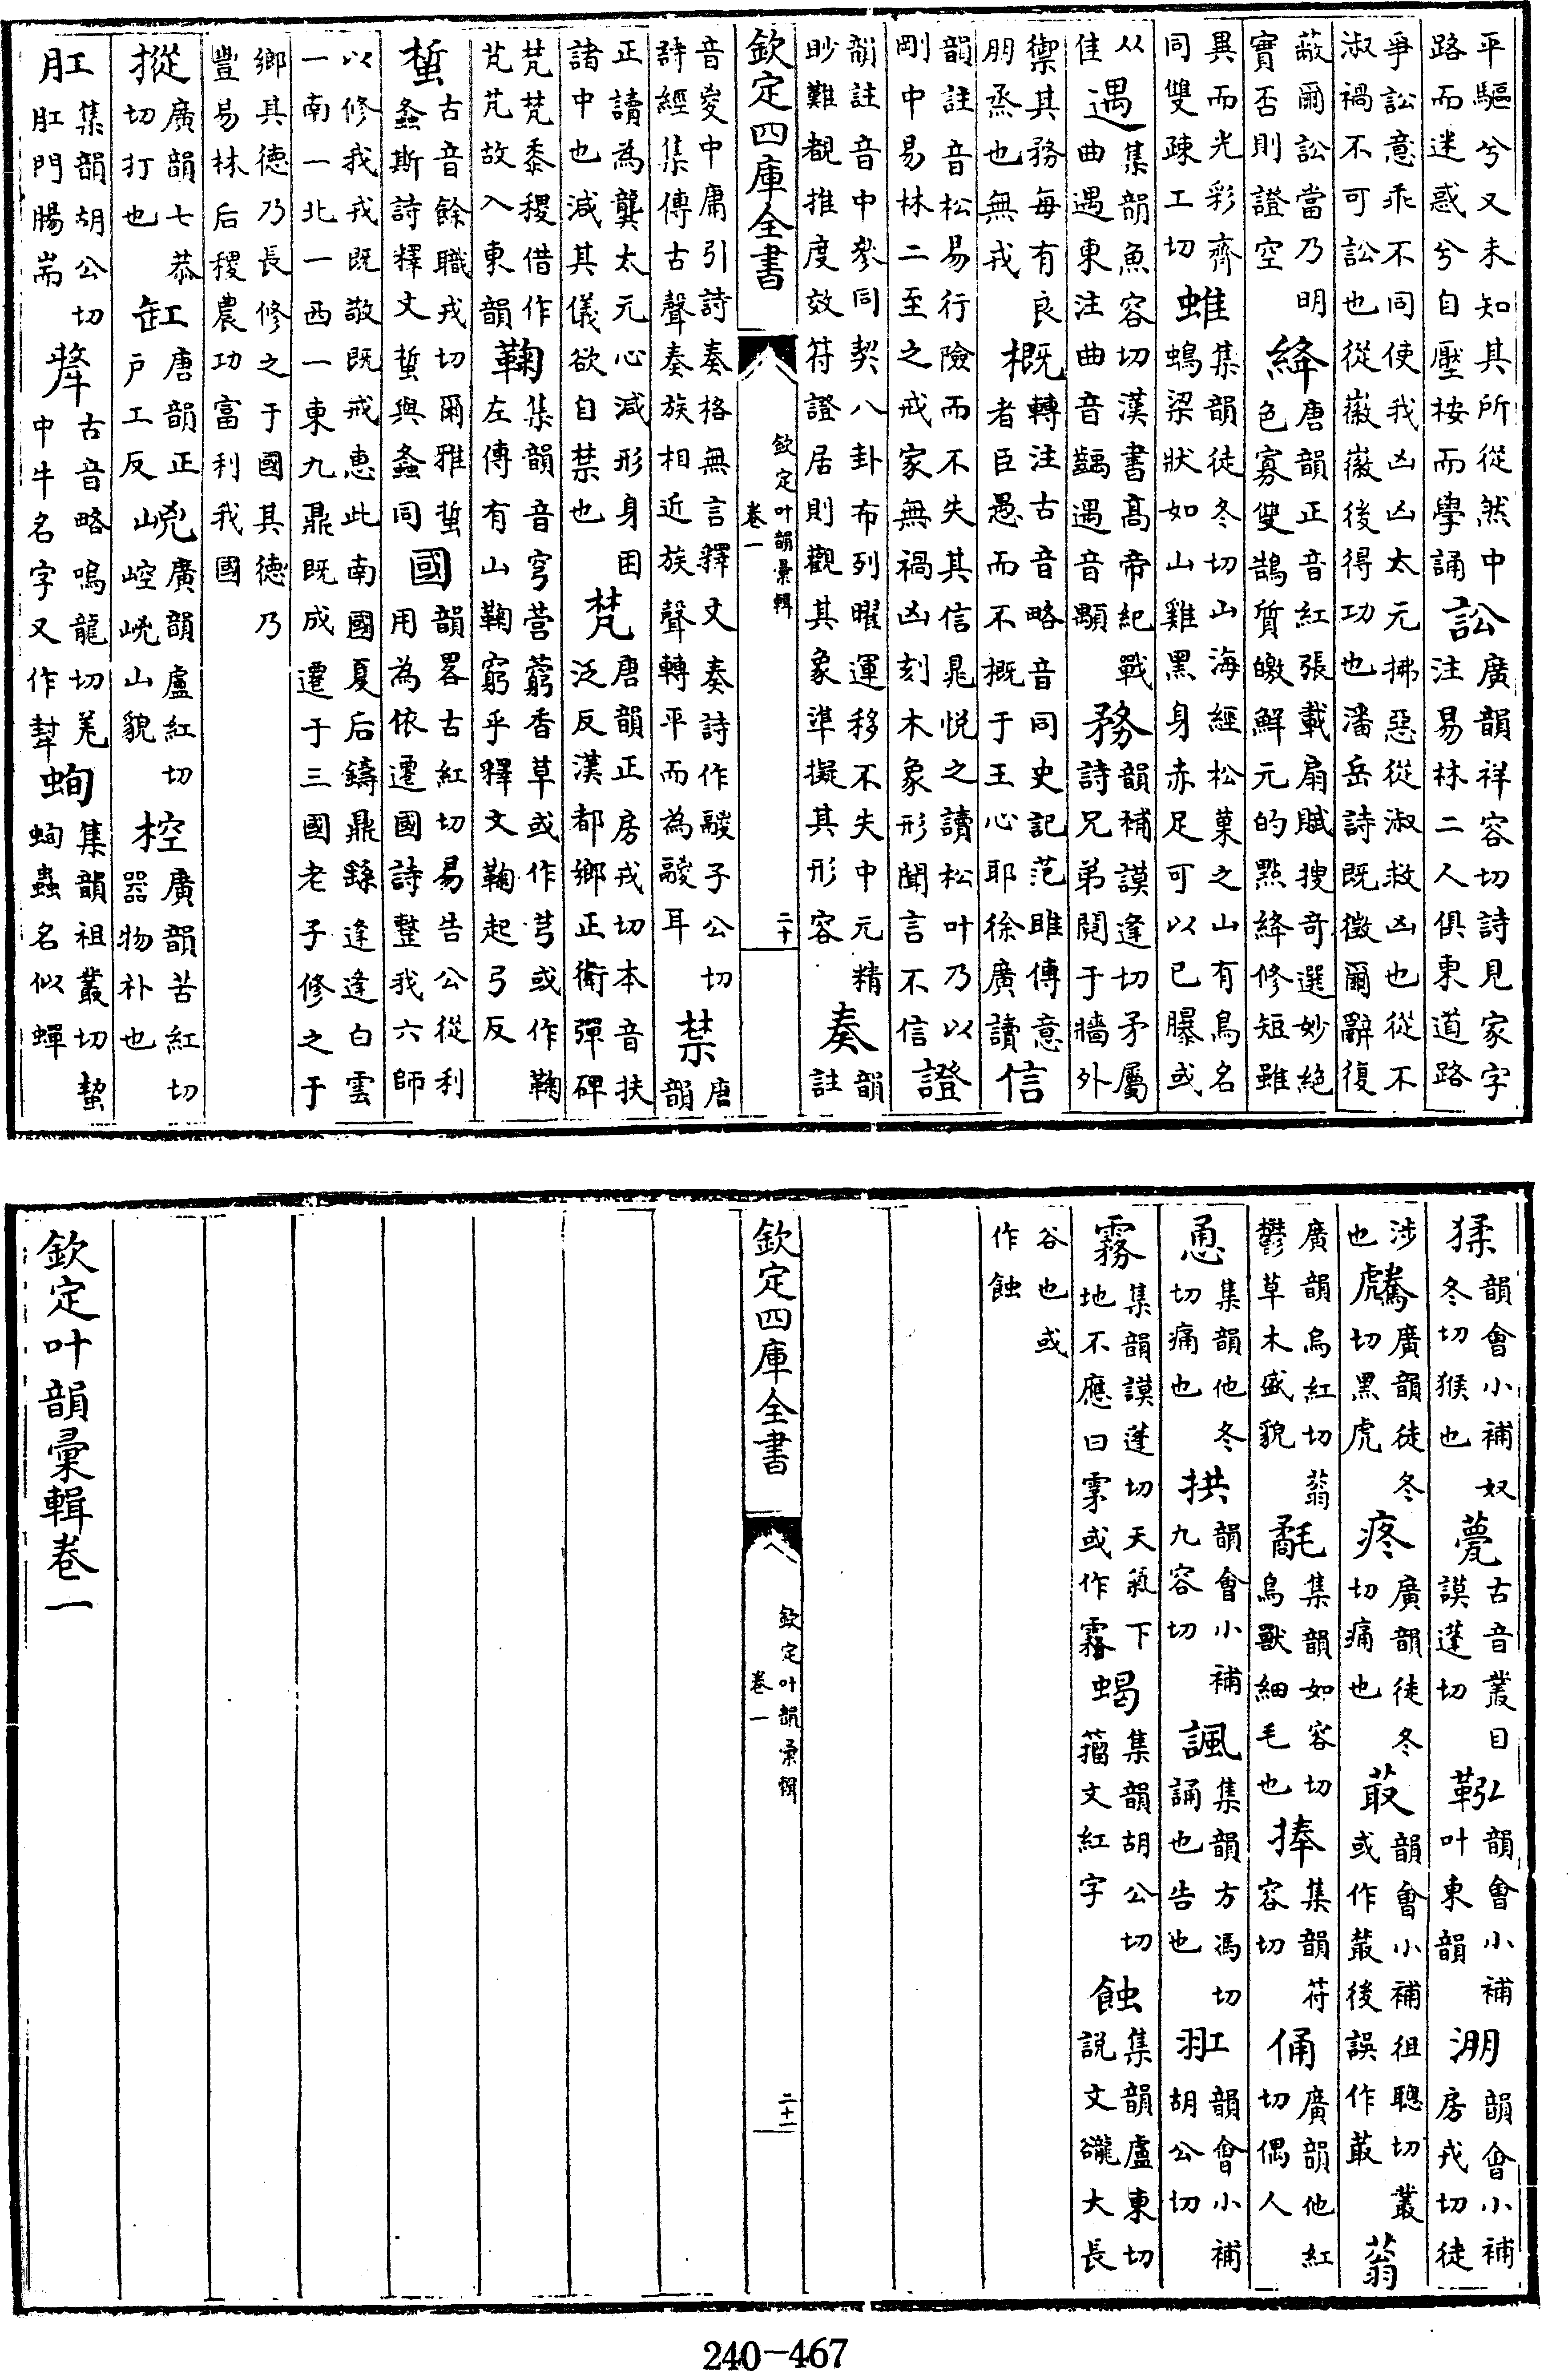 平驅兮又未知其所從然中
路而迷惑兮自壓桉而學誦
訟
廣韻祥容切詩見家字
注易林二人俱東道路
爭訟意乖不同使我凶凶太元拂惡從淑救凶也從不
淑禍不可訟也從徽徽後得功也潘岳詩既徵爾辭復
蔽爾訟當乃明
實否則證空
絳
唐韻正音紅張載扇賦搜奇選妙絶
色寡雙鵠質皦鮮元的㸃絳修短雖
異而光彩齊
同雙疎工切
蜼
集韻徒冬切山海經松菓之山有鳥名
螐梁狀如山雞黑身赤足可以已䑔或
从
佳
遇
集韻魚容切漢書髙帝紀戰
曲遇東注曲音齲遇音顒
務
韻補謨逢切矛屬
詩兄弟鬩于牆外
禦其務每有良
朋烝也無戎
概
轉注古音略音同史記范雎傳意
者臣愚而不概于王心耶徐廣讀
信
韻註音松易行險而不失其信晁悦之讀松叶乃以
剛中易林二至之戒家無禍凶刻木象形聞言不信
證
韻註音中參同契八卦布列曜運移不失中元精
眇難覩推度效符證居則觀其象準擬其形容
奏
韻
註
欽定四庫全書
欽定叶韻彚輯
卷一
二十
音㚇中庸引詩奏格無言釋文奏詩作鬷子公切
詩經集傳古聲奏族相近族聲轉平而為鬷耳
禁
唐
韻
正讀為龔太元心減形身困
諸中也減其儀欲自禁也
梵
唐韻正房戎切本音扶
泛反漢都鄉正衛彈碑
梵梵黍稷借作
芃芃故入東韻
鞠
集韻音穹营藭香草或作芎或作䓖
左傳有山鞠窮乎釋文鞠起弓反
蜤
古音餘職戎切爾雅蜤
螽斯詩釋文蜤與螽同
國
韻畧古紅切易告公從利
用為依遷國詩整我六師
以修我戎既敬既戒惠此南國夏后鑄鼎繇逢逢白雲
一南一北一西一東九鼎既成遷于三國老子修之于
鄉其德乃長修之于國其德乃
豐易林后稷農功富利我國
肛
集韻胡公切
肛門腸耑
犎
古音略鳴龍切羗
中牛名字又作犎
蚼
集韻祖叢切蛪
蚼蟲名似蟬
摐
廣韻七恭
切打也
缸
唐韻正
戸工反
㟅
廣韻盧紅切
崆㟅山貌
椌
廣韻苦紅切
器物朴也
猱
韻會小補奴
冬切猴也
甍
古音叢目
謨蓬切
鞃
韻會小補
叶東韻
淜
韻會小補
房戎切徒
涉
也
䖘
廣韻徒冬
切黑虎
疼
廣韻徒冬
切痛也
菆
韻會小補徂聰切叢
或作菆後誤作菆
蓊
廣韻烏紅切蓊
鬱草木盛貌
氄
集韻如容切
鳥獸細毛也
捧
集韻符
容切
俑
廣韻他紅
切偶人
恿
集韻他冬
切痛也
拱
韻會小補
九容切
諷
集韻方馮切
誦也告也
羾
韻會小補
胡公切
霧
集韻謨蓬切天氣下
地不應曰雺或作霿
蝎
集韻胡公切
籀文紅字
蝕
集韻盧東切
説文豅大長
谷也或
作蝕
欽定四庫全書
欽定叶韻彚輯
卷一
二十一
欽定叶韻彚輯卷一
240-467